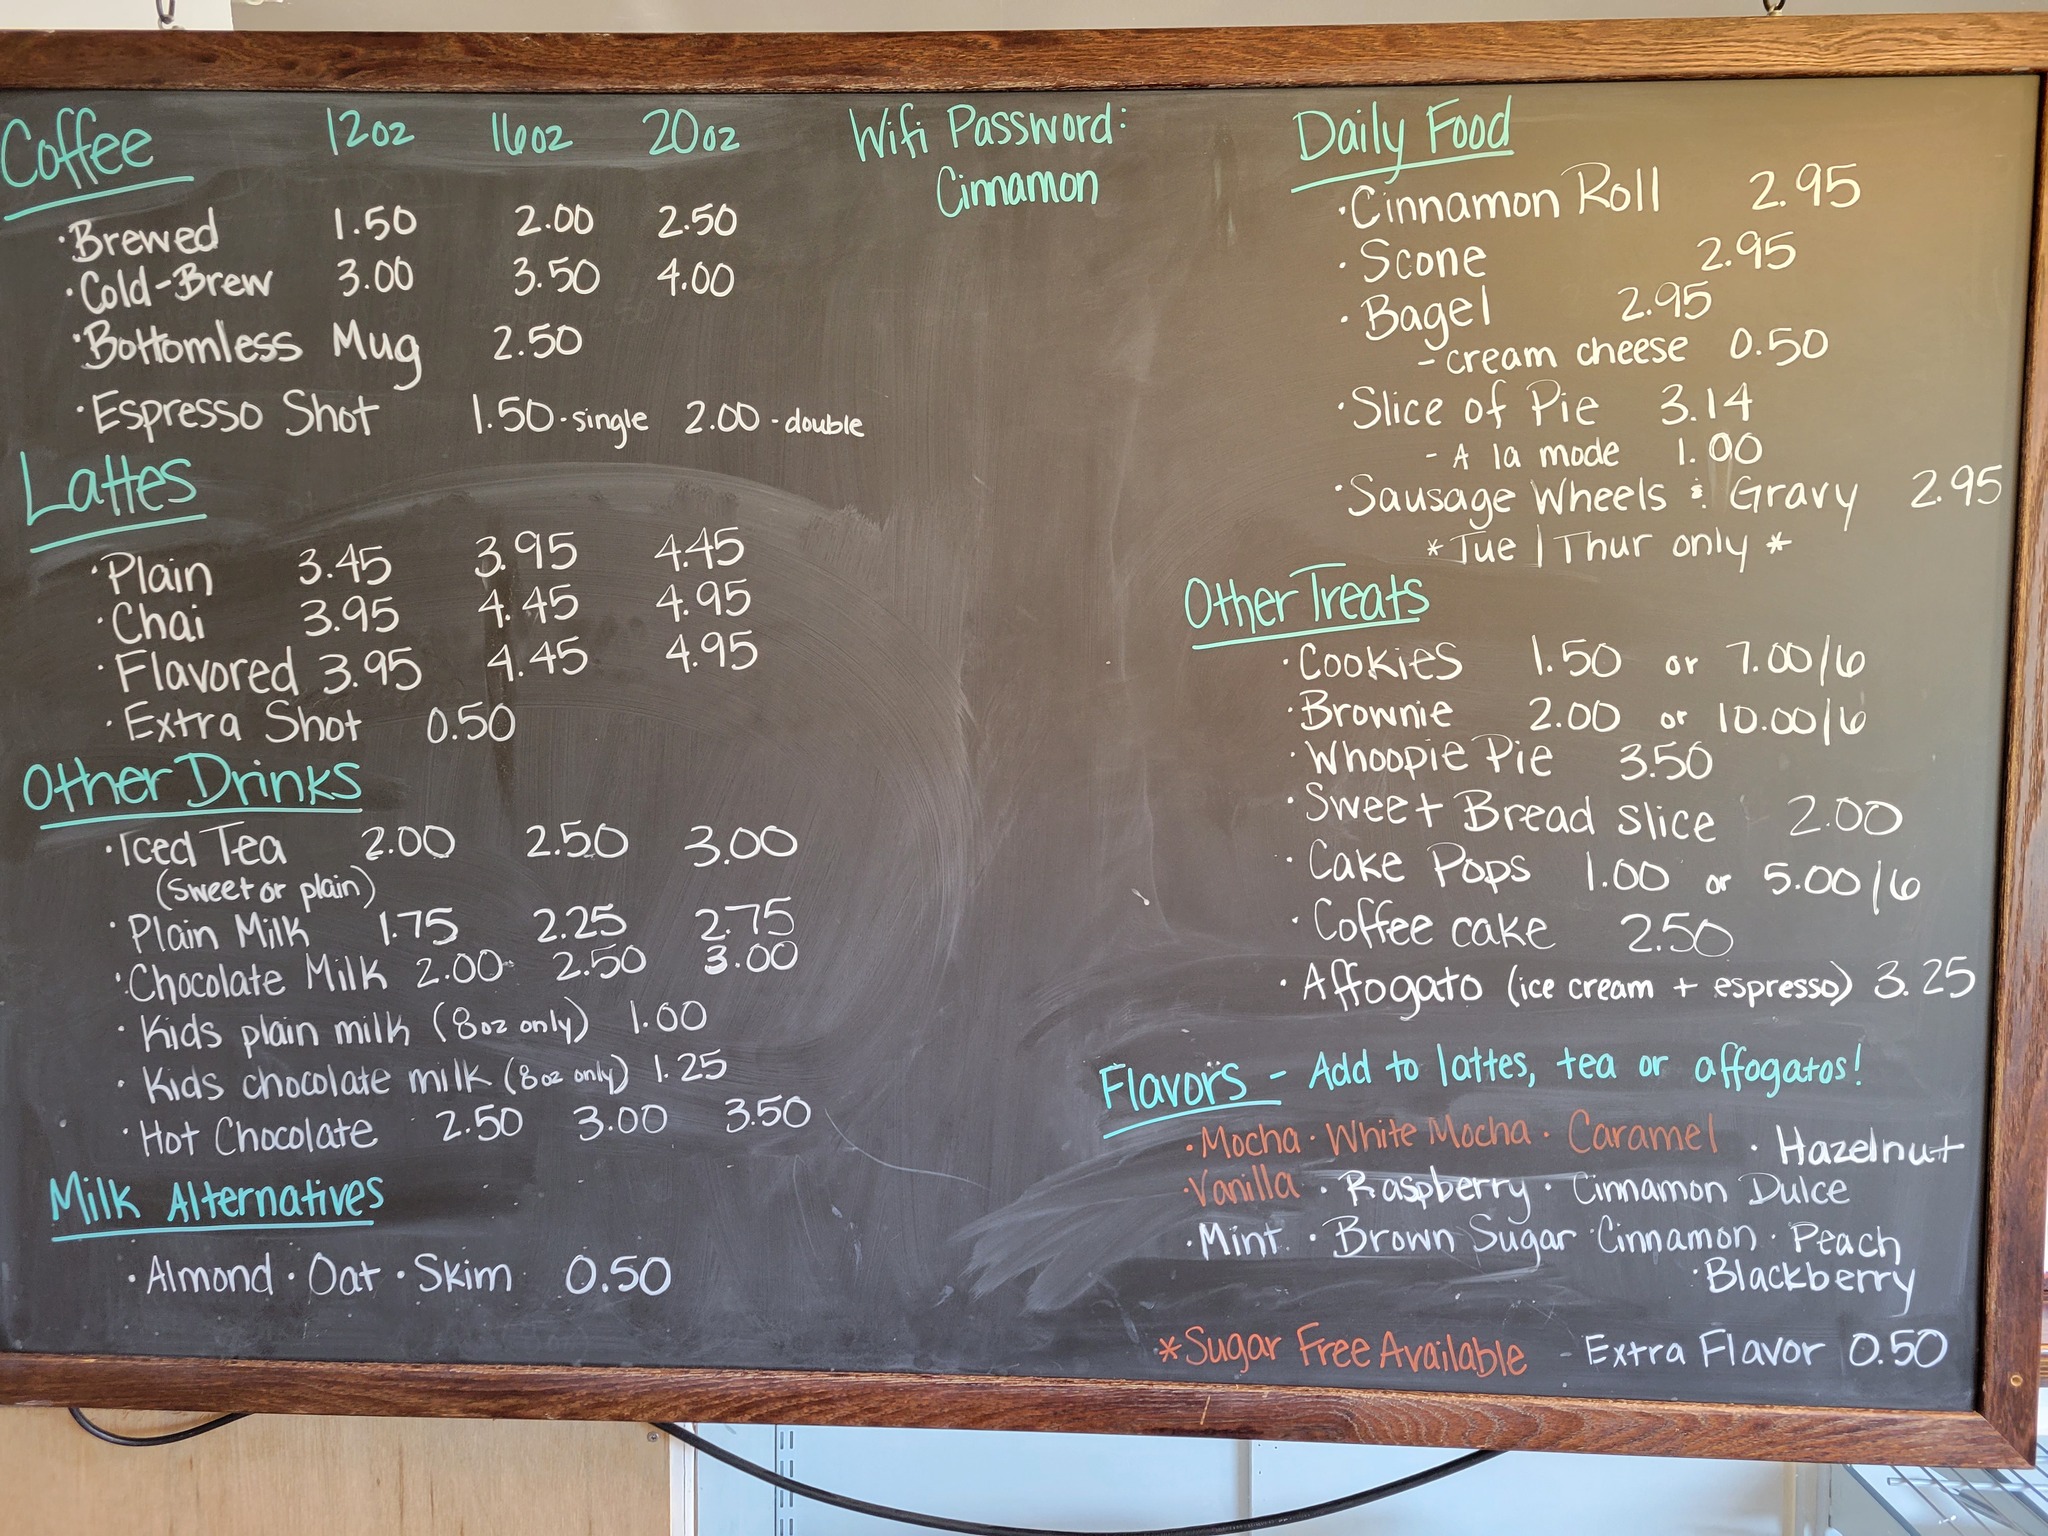 Coffee 12oz 16oz 20oz
·Brewed 1.50 2.00 2.50
·Cold-Brew 3.00 3.50 4.00
·Bottomless Mug 2.50
·Espresso Shot 1.50-single 2.00-double
Lattes
·Plain 3.45 3.95 4.45
·Chai 3.95 4.45 4.95
·Flavored 3.95 4.45 4.95
·Extra Shot 0.50
Other Drinks
·Iced Tea 2.00 2.50 3.00
(sweet or plain)
·Plain Milk 1.75 2.25 2.75
·Chocolate Milk 2.00 2.50 3.00
·Kids plain milk (8oz only) 1.00
·Kids chocolate milk (8oz only) 1.25
·Hot Chocolate 2.50 3.00 3.50
Milk Alternatives
·Almond ·Oat ·Skim 0.50
Wifi Password:
Cinnamon
Daily Food
·Cinnamon Roll 2.95
·Scone 2.95
·Bagel 2.95
-cream cheese 0.50
·Slice of Pie 3.14
- A la mode 1.00
·Sausage Wheels & Gravy 2.95
*Tue | Thur only*
Other Treats
·Cookies 1.50 or 7.00/6
·Brownie 2.00 or 10.00/6
·Whoopie Pie 3.50
·Sweet Bread Slice 2.00
·Cake Pops 1.00 or 5.00/6
·Coffee cake 2.50
·Affogato (ice cream + espresso) 3.25
Flavors - Add to lattes, tea or affogatos!
·Mocha ·White Mocha ·Caramel ·Hazelnut
·Vanilla ·Raspberry ·Cinnamon Dulce
·Mint ·Brown Sugar Cinnamon ·Peach
·Blackberry
*Sugar Free Available - Extra Flavor 0.50